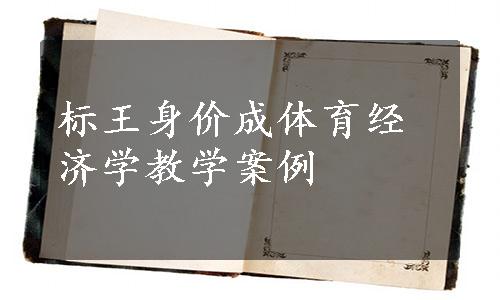 标王身价成体育经
济学教学案例